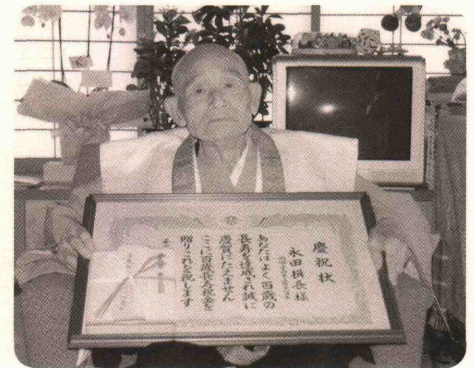 慶祝状
永田楫長様
あなたはよく百歳の
長寿を達成され誠に
慶賀にたえません
ここに百歳長寿祝金を
贈りこれを祝します